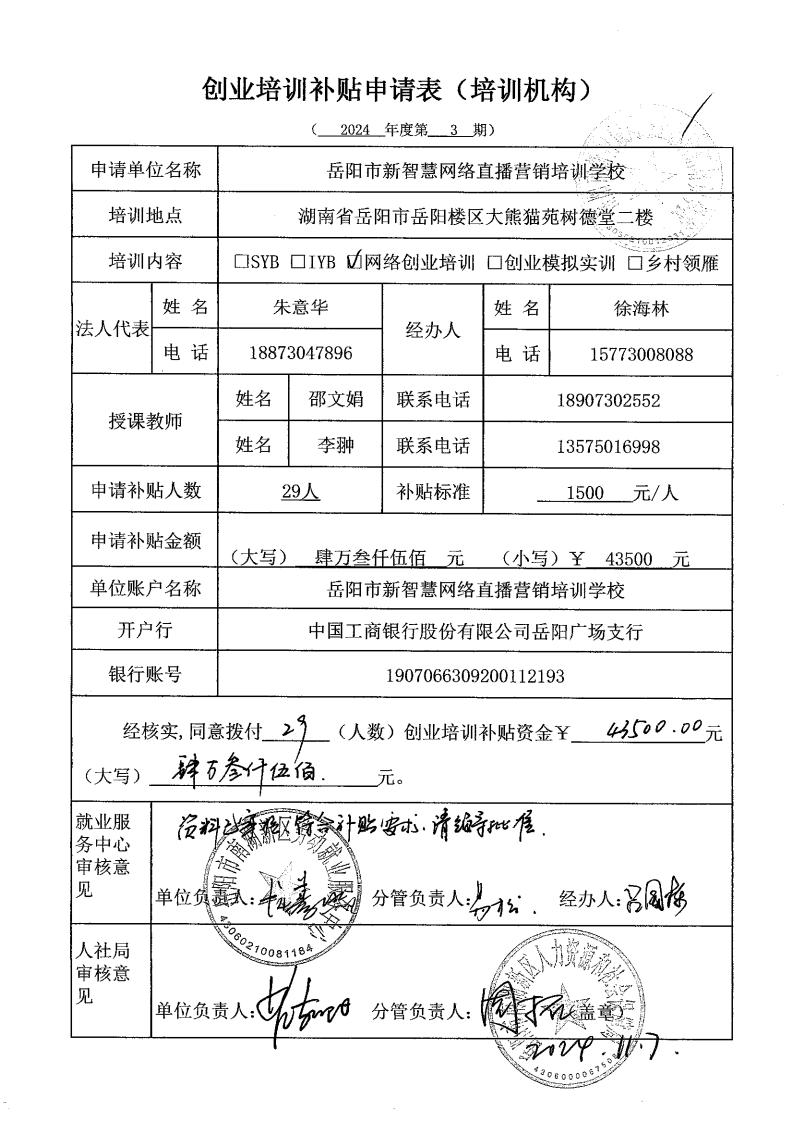 创业培训补贴申请表（培训机构）
（ 2024 年度第 3 期）
申请单位名称 岳阳市新智慧网络直播营销培训学校
培训地点 湖南省岳阳市岳阳楼区大熊猫苑树德堂二楼
培训内容 □SYB □IYB ☑网络创业培训 □创业模拟实训 □乡村领雁
法人代表 姓 名 朱意华 经办人 姓 名 徐海林
电 话 18873047896 电 话 15773008088
授课教师 姓名 邵文娟 联系电话 18907302552
姓名 李翀 联系电话 13575016998
申请补贴人数 29人 补贴标准 1500 元/人
申请补贴金额 （大写） 肆万叁仟伍佰 元 （小写）￥ 43500 元
单位账户名称 岳阳市新智慧网络直播营销培训学校
开户行 中国工商银行股份有限公司岳阳广场支行
银行账号 1907066309200112193
经核实,同意拨付 29 （人数）创业培训补贴资金￥ 43500.00元
（大写） 肆万叁仟伍佰. 元。
就业服务中心审核意见
资料已审核,符合补贴要求.请领导批准.
单位负责人: 分管负责人: 经办人:
岳阳市南湖新区劳动就业服务中心
43060210081184
人社局审核意见
单位负责人: 分管负责人: （盖章）
2024.11.7.